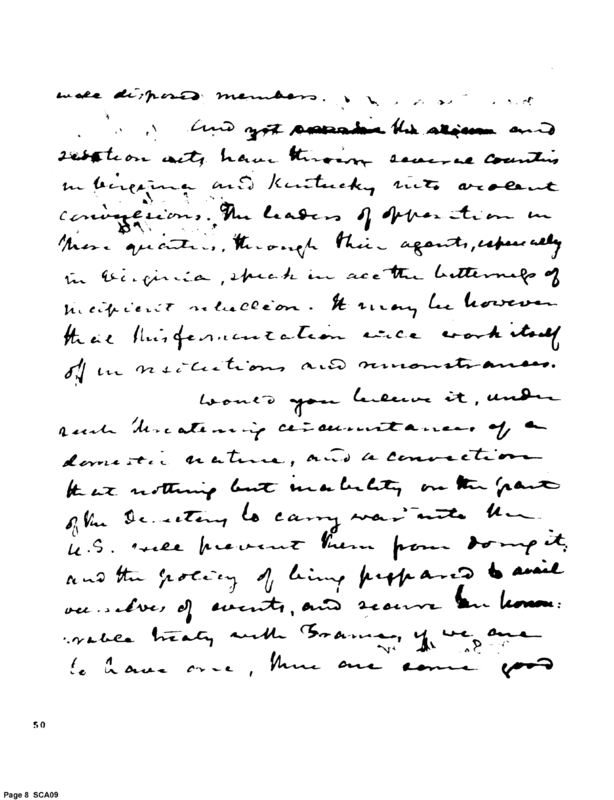 well disposed members.
And yet the alien and
sedition acts have thrown several counties
in Virginia and Kentucky into violent
convulsions. The leaders of opposition in
these quarters, through their agents, especially
in Virginia, speak in all the bitterness of
incipient rebellion. It may be however
that this fermentation will work itself
off in resolutions and remonstrances.
Would you believe it, under
such threatening circumstances of a
domestic nature, and a conviction
that nothing but inability on the part
of the Directory to carry war into the
U.S. will prevent them from doing it,
and the policy of being prepared to avail
ourselves of events, and secure an honou:
rable treaty with France, if we are
to have one, there are some good
50
Page 8 SCA09